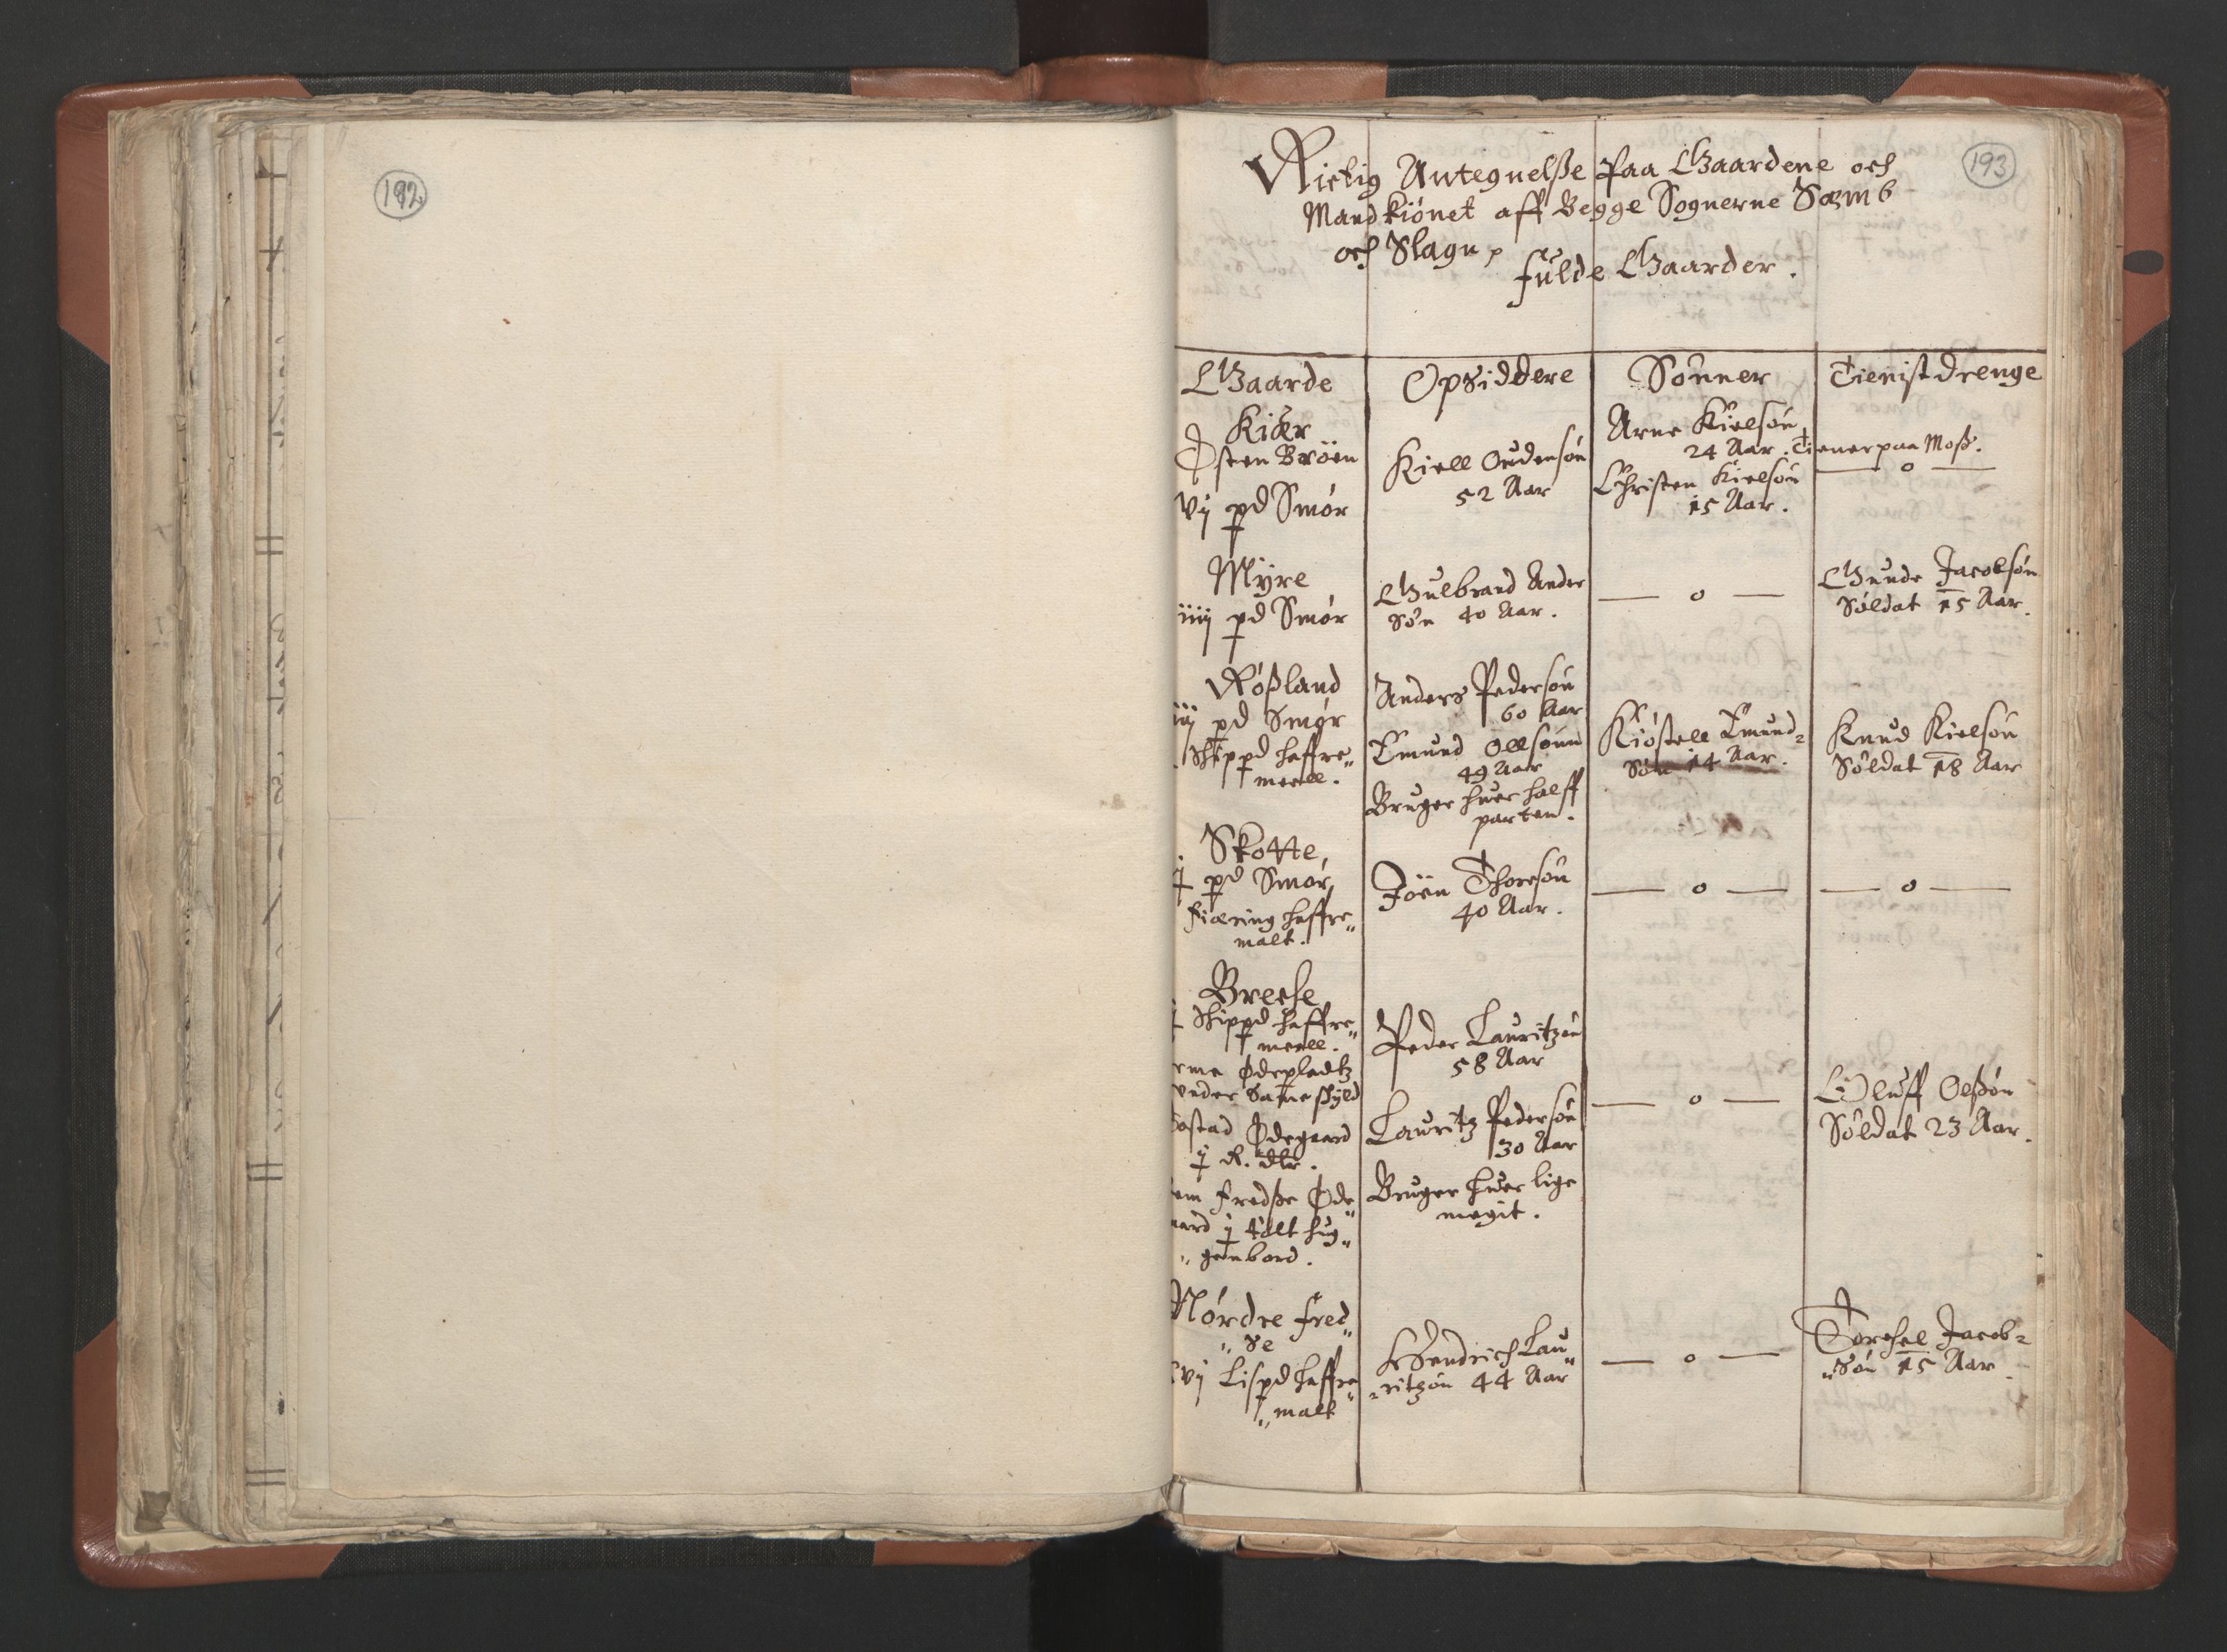 192
193
Rictig Antegnelße Paa Gaardene och
Mandkiönet aff Begge Sognerne Sæmb
och Slagn
fulde Gaarder.
Gaarde Opsiddere Sønner Tienist drenge
Kiær
Østen Broen
vj pd Smør
Kiell Oudensøn
52 Aar
Arne Kielsøn
24 Aar. Tiener paa Moß.
Christen Kielsøn
15 Aar.
— o —
Myre
iiij pd Smør
Gulbrand Ander
søn 40 Aar.
— o —
Gunde Jacobsøn
Soldat 15 Aar.
Røßland
iij pd Smør
Skippd haffre„
meell.
Anders Pedersøn
60 Aar
Emund Ollsønn
49 Aar
Bruger huer halff
parten.
Kiøstell Emund=
søn 14 Aar.
Knud Kielsøn
Soldat 18 Aar
Skotte
j pd Smør
Fiæring haffre„
malt.
Joen Thoresøn
40 Aar.
— o —
— o —
Breche
j Skippd haffre„
meell.
Ødepladtz
vnder Same skyld
Ødegaard
j R. dlr.
Fredße Øde„
j tolt hug„
„ genbord.
Peder Lauritzøn
58 Aar
Lauritz Pedersøn
30 Aar
Bruger huer lige
megit.
— o —
Oluff Olßøn
Soldat 23 Aar.
Nordre Fred„
„ se
vj Lispd haffre„
„ malt
Hendrich Lau„
=ritzøn 44 Aar
— o —
Torchel Jacob=
„søn 15 Aar.